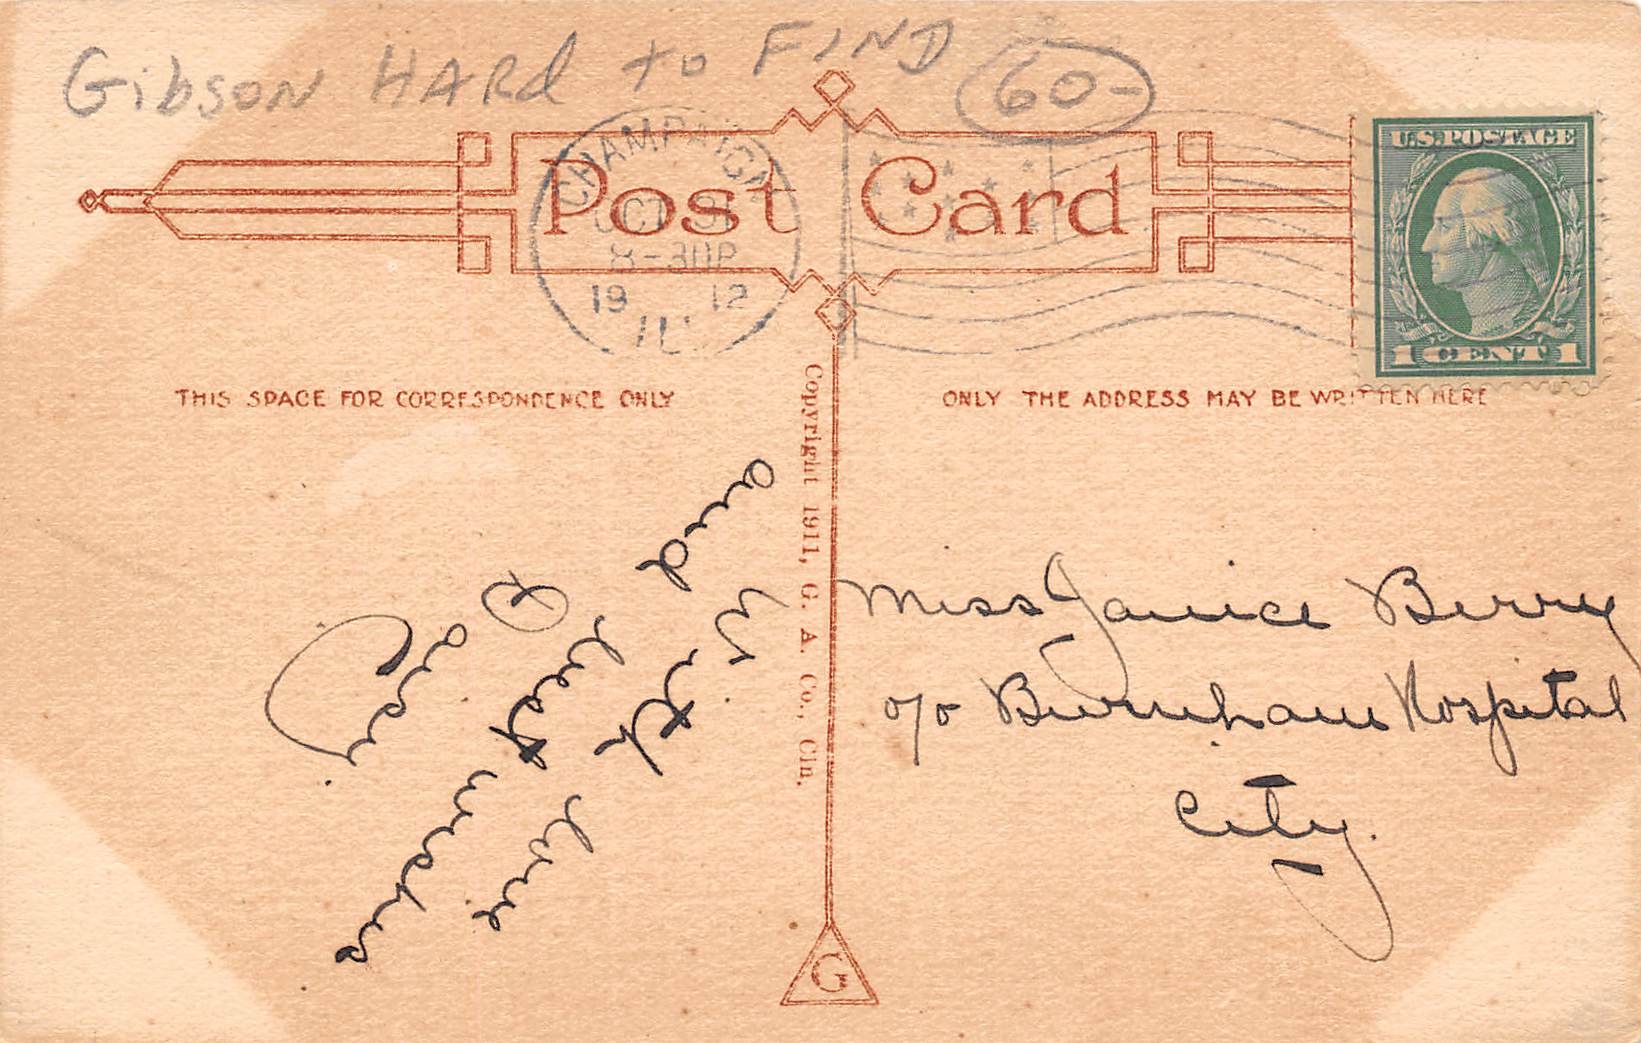 Gibson HARd to FIND 60-
CHAMPAIGN
OCT 31
8-30P
19 12
ILL
Post Card
U.S. POSTAGE
1 CENT 1
THIS SPACE FOR CORRESPONDENCE ONLY
ONLY THE ADDRESS MAY BE WRITTEN HERE
Copyright 1911, G. A. Co., Cin.
With love
and best wishes
Miss Janice Berry
c/o Burnham Hospital
City.
G